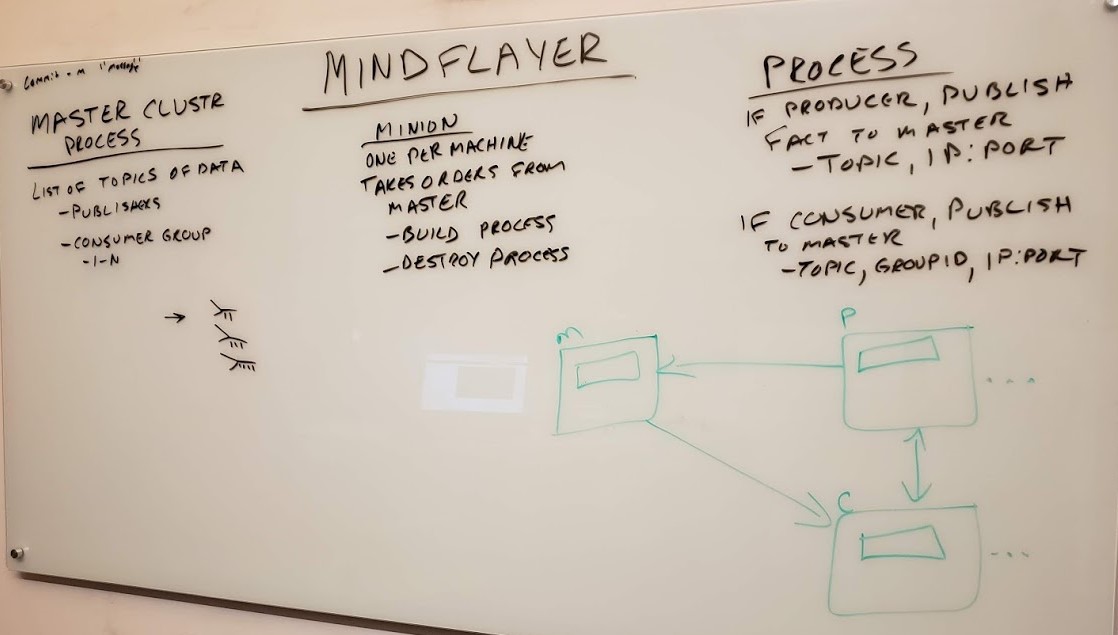 Commit - m "message"
MINDFLAYER
MASTER CLUSTR
PROCESS
LIST OF TOPICS OF DATA
- PUBLISHERS
- CONSUMER GROUP
- 1-N
MINION
ONE PER MACHINE
TAKES ORDERS FROM
MASTER
- BUILD PROCESS
- DESTROY PROCESS
PROCESS
IF PRODUCER, PUBLISH
FACT TO MASTER
- TOPIC, IP:PORT
IF CONSUMER, PUBLISH
TO MASTER
- TOPIC, GROUPID, IP:PORT
M
P
C